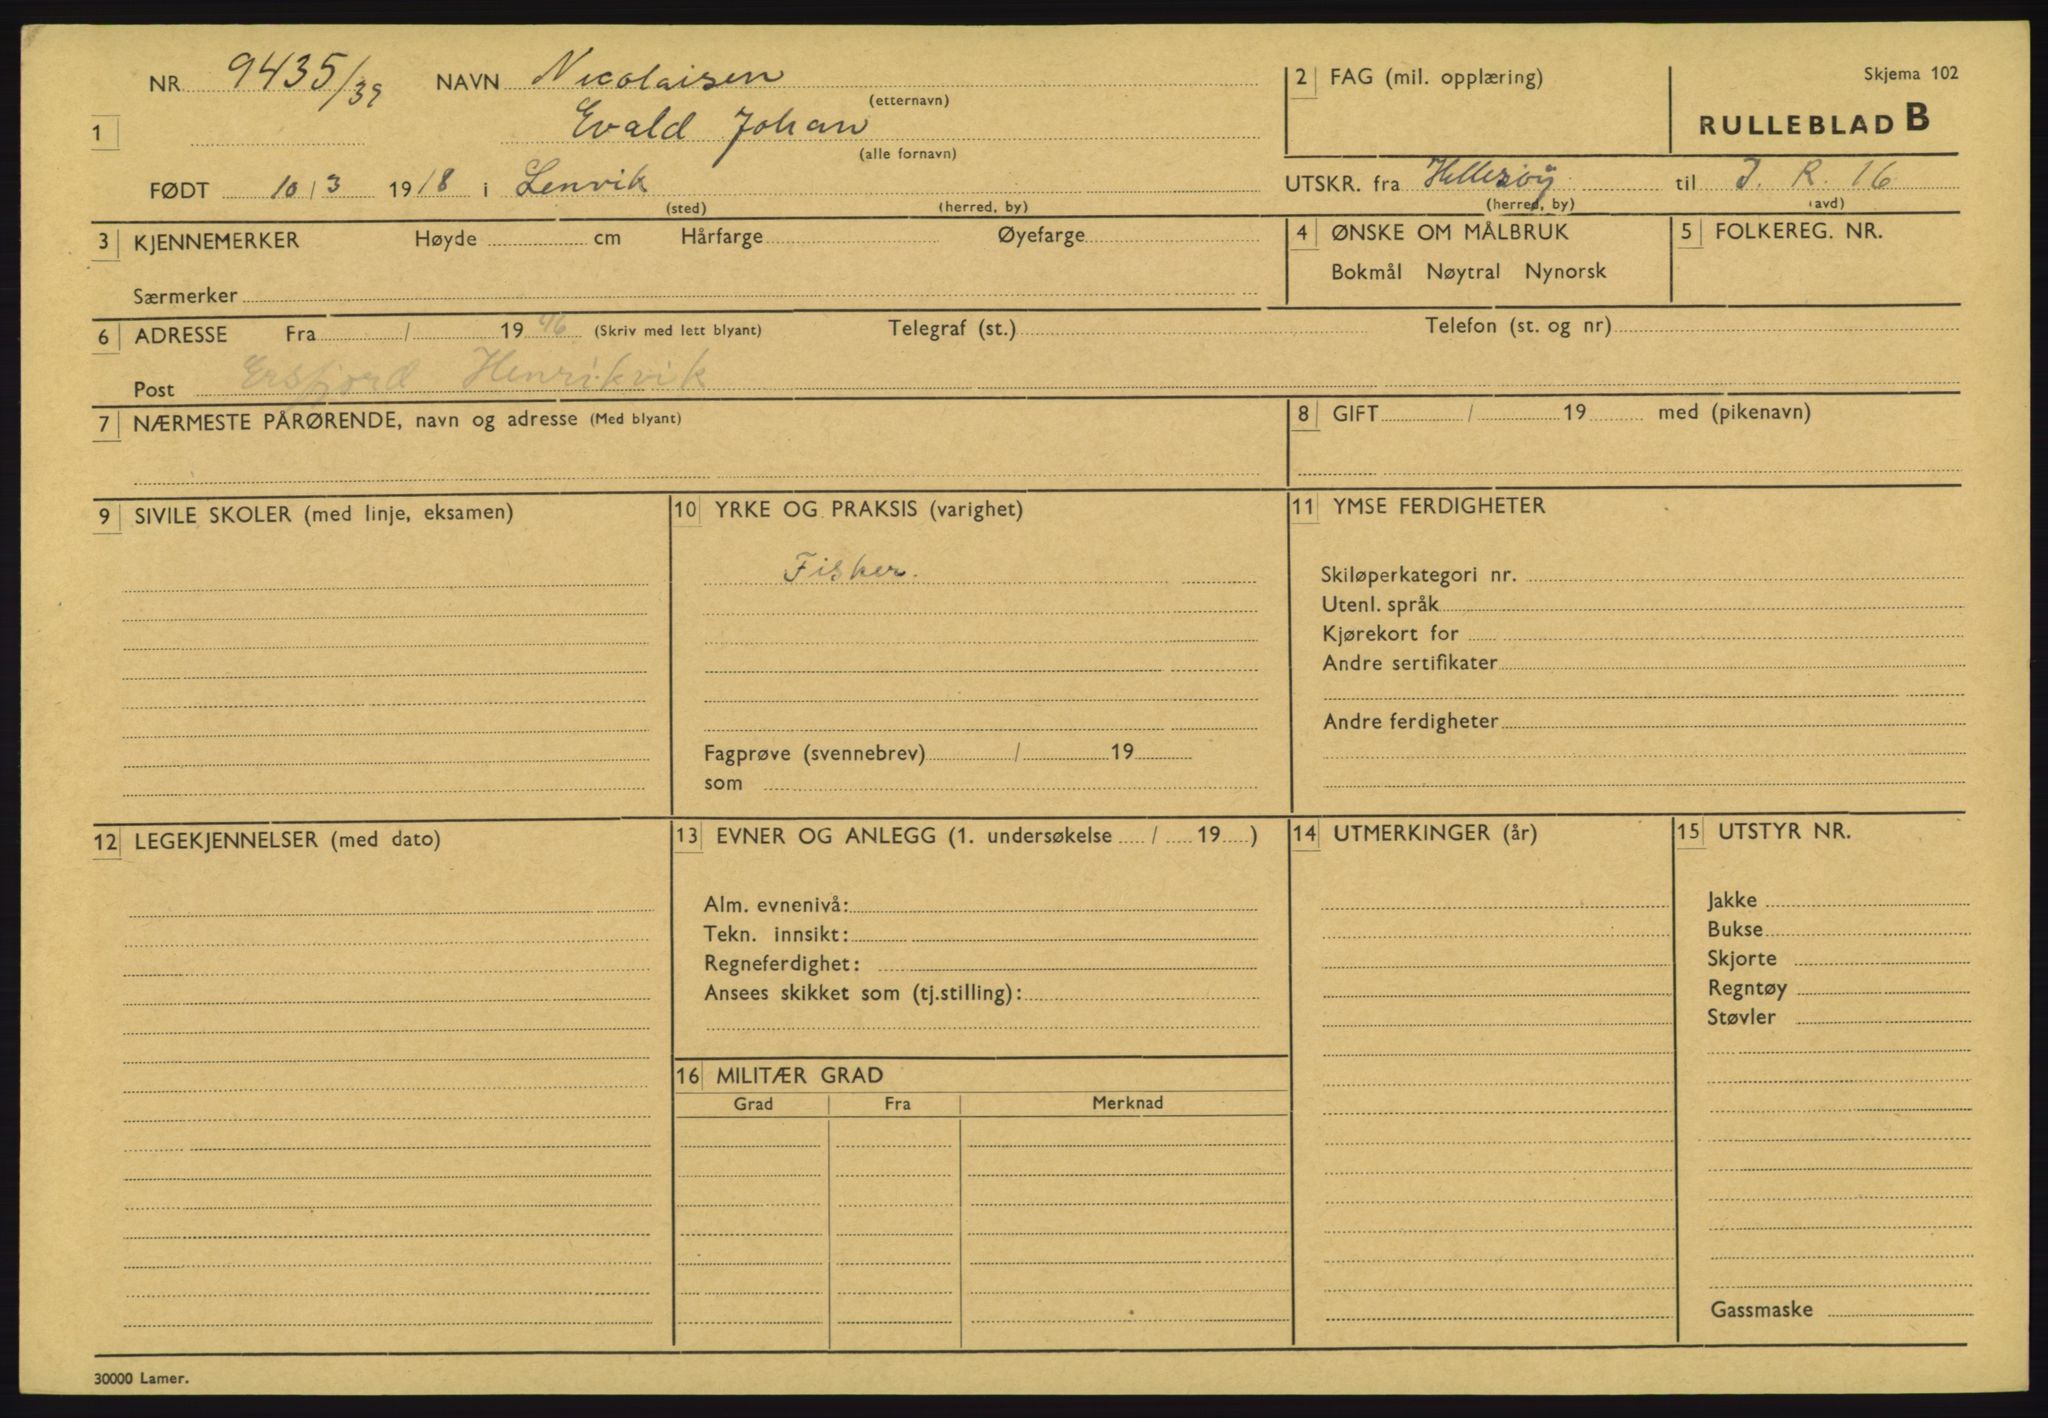 NR 9435/39 NAVN Nicolaisen
(etternavn)
1
Evald Johan
(alle fornavn)
FØDT 10/3 1918 i Lenvik
(sted) (herred, by)
2 FAG (mil. opplæring)
Skjema 102
RULLEBLAD B
UTSKR. fra Hillesøy til J. R. 16
(herred, by) (avd)
3 KJENNEMERKER Høyde cm Hårfarge Øyefarge
Særmerker
4 ØNSKE OM MÅLBRUK
Bokmål Nøytral Nynorsk
5 FOLKEREG. NR.
6 ADRESSE Fra / 1946 (Skriv med lett blyant) Telegraf (st.) Telefon (st. og nr)
Post Ersfjord Henrikvik
7 NÆRMESTE PÅRØRENDE, navn og adresse (Med blyant)
8 GIFT / 19 med (pikenavn)
9 SIVILE SKOLER (med linje, eksamen)
10 YRKE OG PRAKSIS (varighet)
Fisker.
Fagprøve (svennebrev) / 19
som
11 YMSE FERDIGHETER
Skiløperkategori nr.
Utenl. språk
Kjørekort for
Andre sertifikater
Andre ferdigheter
12 LEGEKJENNELSER (med dato)
13 EVNER OG ANLEGG (1. undersøkelse / 19 )
Alm. evnenivå:
Tekn. innsikt:
Regneferdighet:
Ansees skikket som (tj.stilling):
14 UTMERKINGER (år)
15 UTSTYR NR.
Jakke
Bukse
Skjorte
Regntøy
Støvler
Gassmaske
16 MILITÆR GRAD
Grad Fra Merknad
30000 Lamer.